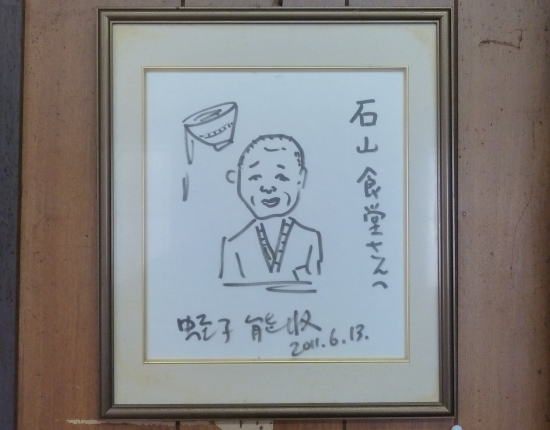 石山食堂さんへ
蛭子能収
2011.6.13.